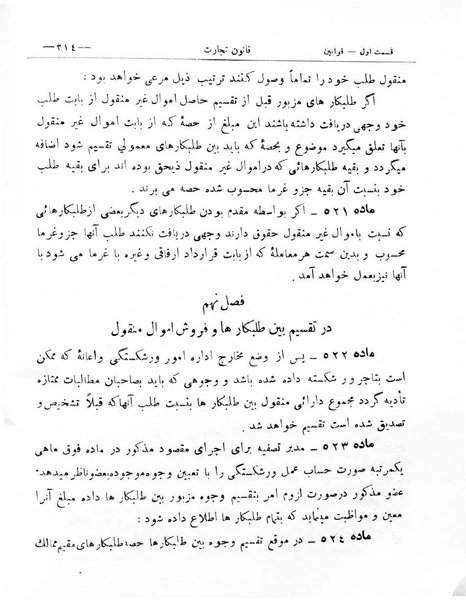 قسمت اول — قوانین
قانون تجارت
—۳۱٤—
منقول طلب خود را تماماً وصول کنند ترتیب ذیل مرعی خواهد بود :
اگر طلبکار های مزبور قبل از تقسیم حاصل اموال غیر منقول از بابت طلب
خود وجهی دریافت داشته باشند این مبلغ از حصهٔ که از بابت اموال غیر منقول
بآنها تعلق میگیرد موضوع و بحصهٔ که باید بین طلبکارهای معمولی تقسیم شود اضافه
میگردد و بقیه طلبکارهائی که در اموال غیر منقول ذیحق بوده اند برای بقیه طلب
خود بنسبت آن بقیه جزو غرما محسوب شده حصه می برند .
ماده ۵۲۱ — اگر بواسطه مقدم بودن طلبکارهای دیگر بعضی از طلبکارهائی
که نسبت باموال غیر منقول حقوق دارند وجهی دریافت نکنند طلب آنها جزو غرما
محسوب و بدین سمت هر معاملهٔ که از بابت قرارداد ارفاقی و غیره با غرما می شود با
آنها نیز بعمل خواهد آمد .
فصل نهم
در تقسیم بین طلبکار ها و فروش اموال منقول
ماده ۵۲۲ — پس از وضع مخارج اداره امور ورشکستگی و اعانهٔ که ممکن
است بتاجر ور شکسته داده شده باشد و وجوهی که باید بصاحبان مطالبات ممتازه
تأدیه گردد مجموع دارائی منقول بین طلبکار ها بنسبت طلب آنها که قبلاً تشخیص و
تصدیق شده است تقسیم خواهد شد .
ماده ۵۲۳ — مدیر تصفیه برای اجرای مقصود مذکور در ماده فوق ماهی
یکمرتبه صورت حساب عمل ورشکستگی را با تعیین وجوه موجوده بعضو ناظر میدهد.
عضو مذکور در صورت لزوم امر بتقسیم وجوه مزبور بین طلبکار ها داده مبلغ آنرا
معین و مواظبت مینماید که بتمام طلبکار ها اطلاع داده شود :
ماده ۵۲٤ — در موقع تقسیم وجوه بین طلبکارها حصه طلبکارهای مقیم ممالک